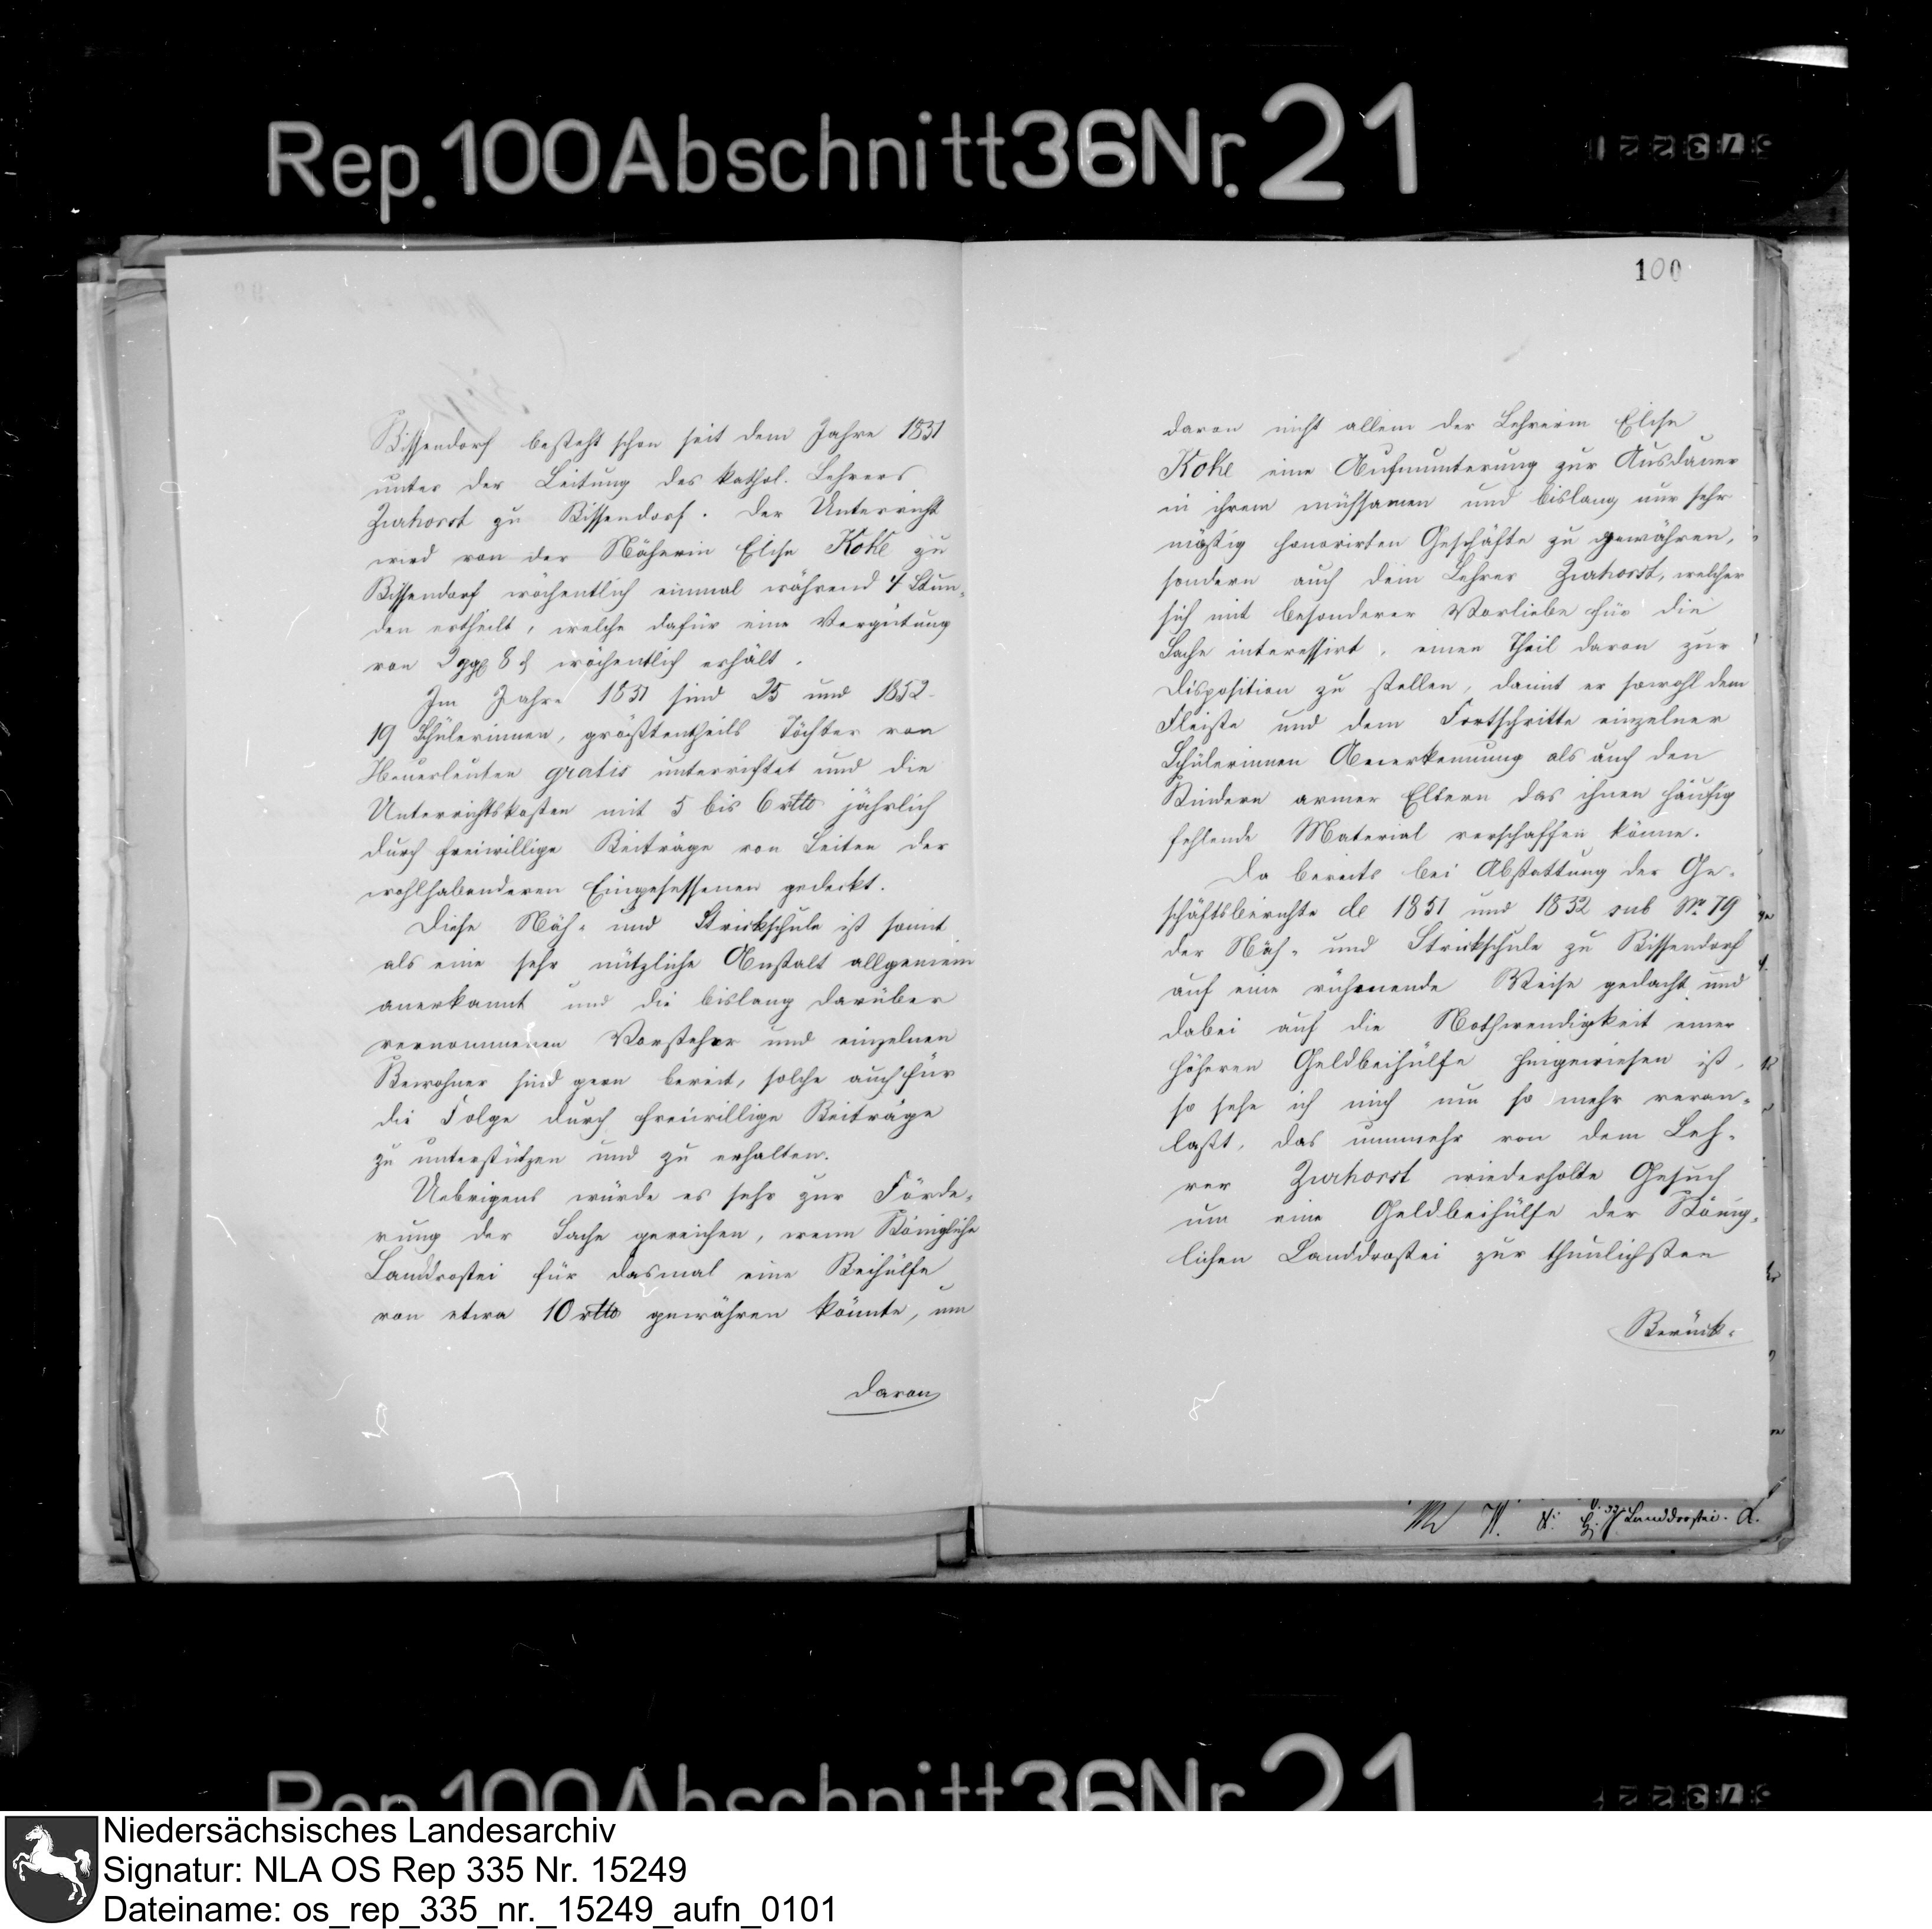 Rep. 100 Abschnitt 36 Nr. 21
Bissendorf besteht schon seit dem Jahre 1851
unter der Leitung des kathol. Lehrers
Zurhorst zu Bissendorf. Der Unterricht
wird von der Näherin Elise Koke zu
Bissendorf wöchentlich einmal während 4 Stun-
den ertheilt, welche dafür eine Vergütung
von 2 ggr 8 d wöchentlich erhält.
Im Jahre 1851 sind 25 und 1852
19 Schülerinnen, größtentheils Töchter von
Heuerleuten gratis unterrichtet und die
Unterrichtskosten mit 5 bis 6 rtlr jährlich
durch freiwillige Beiträge von Seiten der
wohlhabenderen Eingesessenen gedeckt.
Diese Näh- und Strickschule ist somit
als eine sehr nützliche Anstalt allgemein
anerkannt und die bislang darüber
vernommenen Vorsteher und einzelnen
Bewohner sind gern bereit, solche auch für
die Folge durch freiwillige Beiträge
zu unterstützen und zu erhalten.
Uebrigens würde es sehr zur Förde-
rung der Sache gereichen, wenn Königliche
Landdrostei für dasmal eine Beihülfe
von etwa 10 rtlr gewähren könnte, um
davon
100
davon nicht allein der Lehrerin Elise
Koke eine Aufmunterung zur Ausdauer
in ihrem mühsamen und bislang nur sehr
mäßig honorirten Geschäfte zu gewähren,
sondern auch dem Lehrer Zurhorst, welcher
sich mit besonderer Vorliebe für die
Sache interessirt, einen Theil davon zur
Disposition zu stellen, damit er sowohl dem
Fleiße und dem Fortschritte einzelner
Schülerinnen Anerkennung als auch den
Kindern armer Eltern das ihnen häufig
fehlende Material verschaffen könne.
Da bereits bei Abstattung der Ge-
schäftsberichte de 1851 und 1852 sub No 79
der Näh- und Strickschule zu Bissendorf
auf eine rühmende Weise gedacht und
dabei auf die Nothwendigkeit einer
höheren Geldbeihülfe hingewiesen ist,
so sehe ich mich um so mehr veran-
laßt, das nunmehr von dem Leh-
rer Zurhorst wiederholte Gesuch
um eine Geldbeihülfe der König-
lichen Landdrostei zur thunlichsten
Berück-
Landdrostei.
Rep. 100 Abschnitt 36 Nr. 21
Niedersächsisches Landesarchiv
Signatur: NLA OS Rep 335 Nr. 15249
Dateiname: os_rep_335_nr._15249_aufn_0101